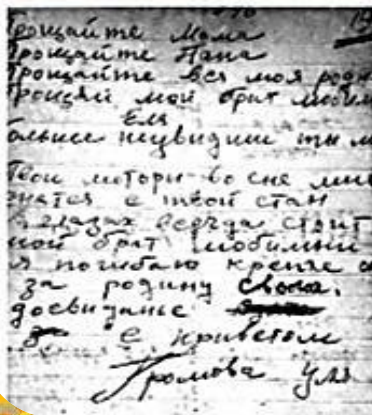 Прощайте Мама
Прощайте Папа
Прощайте вся моя родн
Прощай мой брат любим
Еля
больше неувидиш ты м
Твои моторы во сне мне
снятся е твой стан
в глазах всегда стоит
мой брат любимый
я погибаю крепче
за родину свою.
досвидание
с приветом
Громова Уля